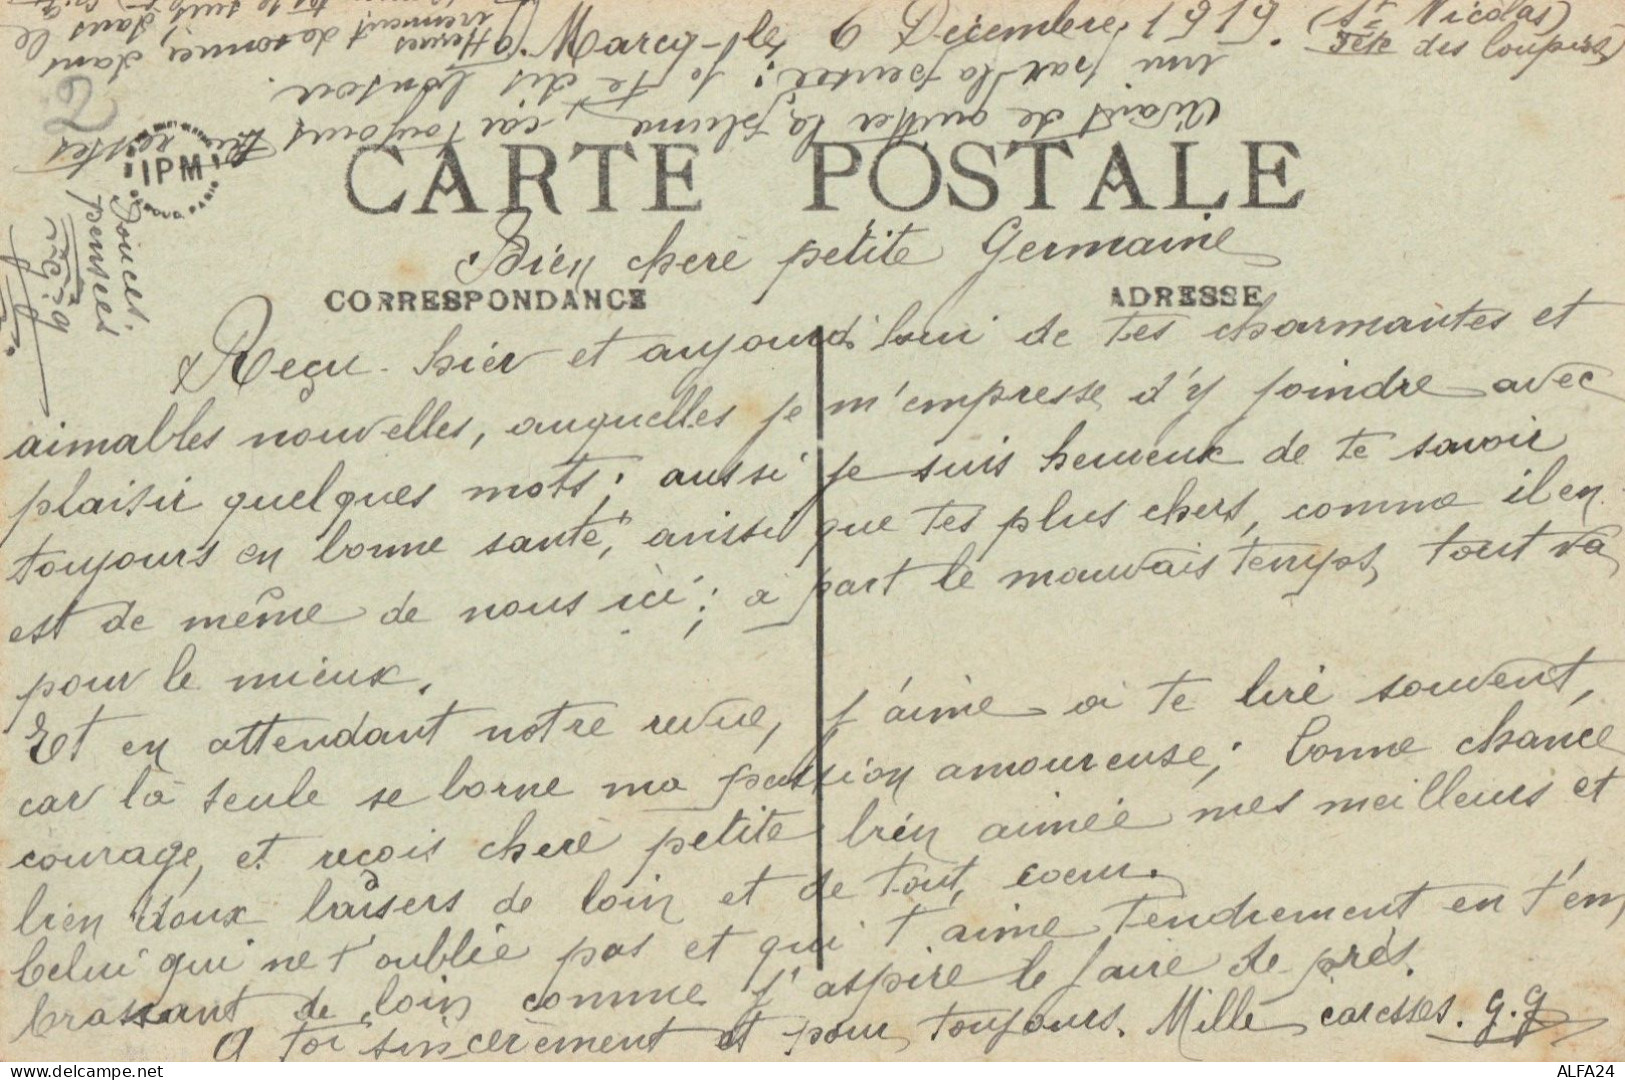 Marcq-le 6 Décembre 1919. (St Nicolas)
Fête des loupiots
CARTE POSTALE
IPM
Bien chère petite Germaine
CORRESPONDANCE
ADRESSE
Reçu hier et aujourd'hui de tes charmantes et
aimables nouvelles, auquelles je m'empresse d'y joindre avec
plaisir quelques mots; aussi je suis heureux de te savoir
toujours en bonne santé, aussi que tes plus chers, comme il en
est de même de nous ici; à part le mauvais temps, tout va
pour le mieux.
Et en attendant notre revue, j'aime à te lire souvent,
car là seule se borne ma passion amoureuse; bonne chance
courage, et reçois chère petite bien aimée mes meilleurs et
bien doux baisers de loin et de tout coeur.
Celui qui ne t'oublie pas et qui t'aime tendrement en t'em
brassant de loin comme j'aspire le faire de près.
A toi sincèrement et pour toujours. Mille caresses. G.G
Avant de quitter la plume, car toujours tu restes
uni par la pensée; je te dis bonsoir.
Douces
pensées